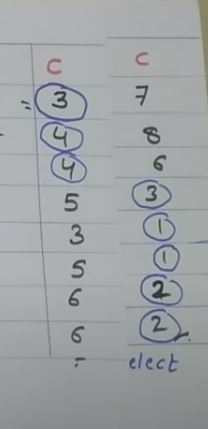 C C
= 3 7
4 8
4 6
5 3
3 1
5 1
6 2
6 2
elect